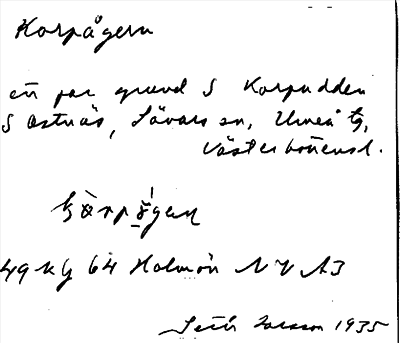 Korpågern
en par grund S Korpudden
S Ostnäs, Sävars sn, Umeå tg,
Västerbottensl.
49 Kg 64 Holmön NV A3
Larsson 1935